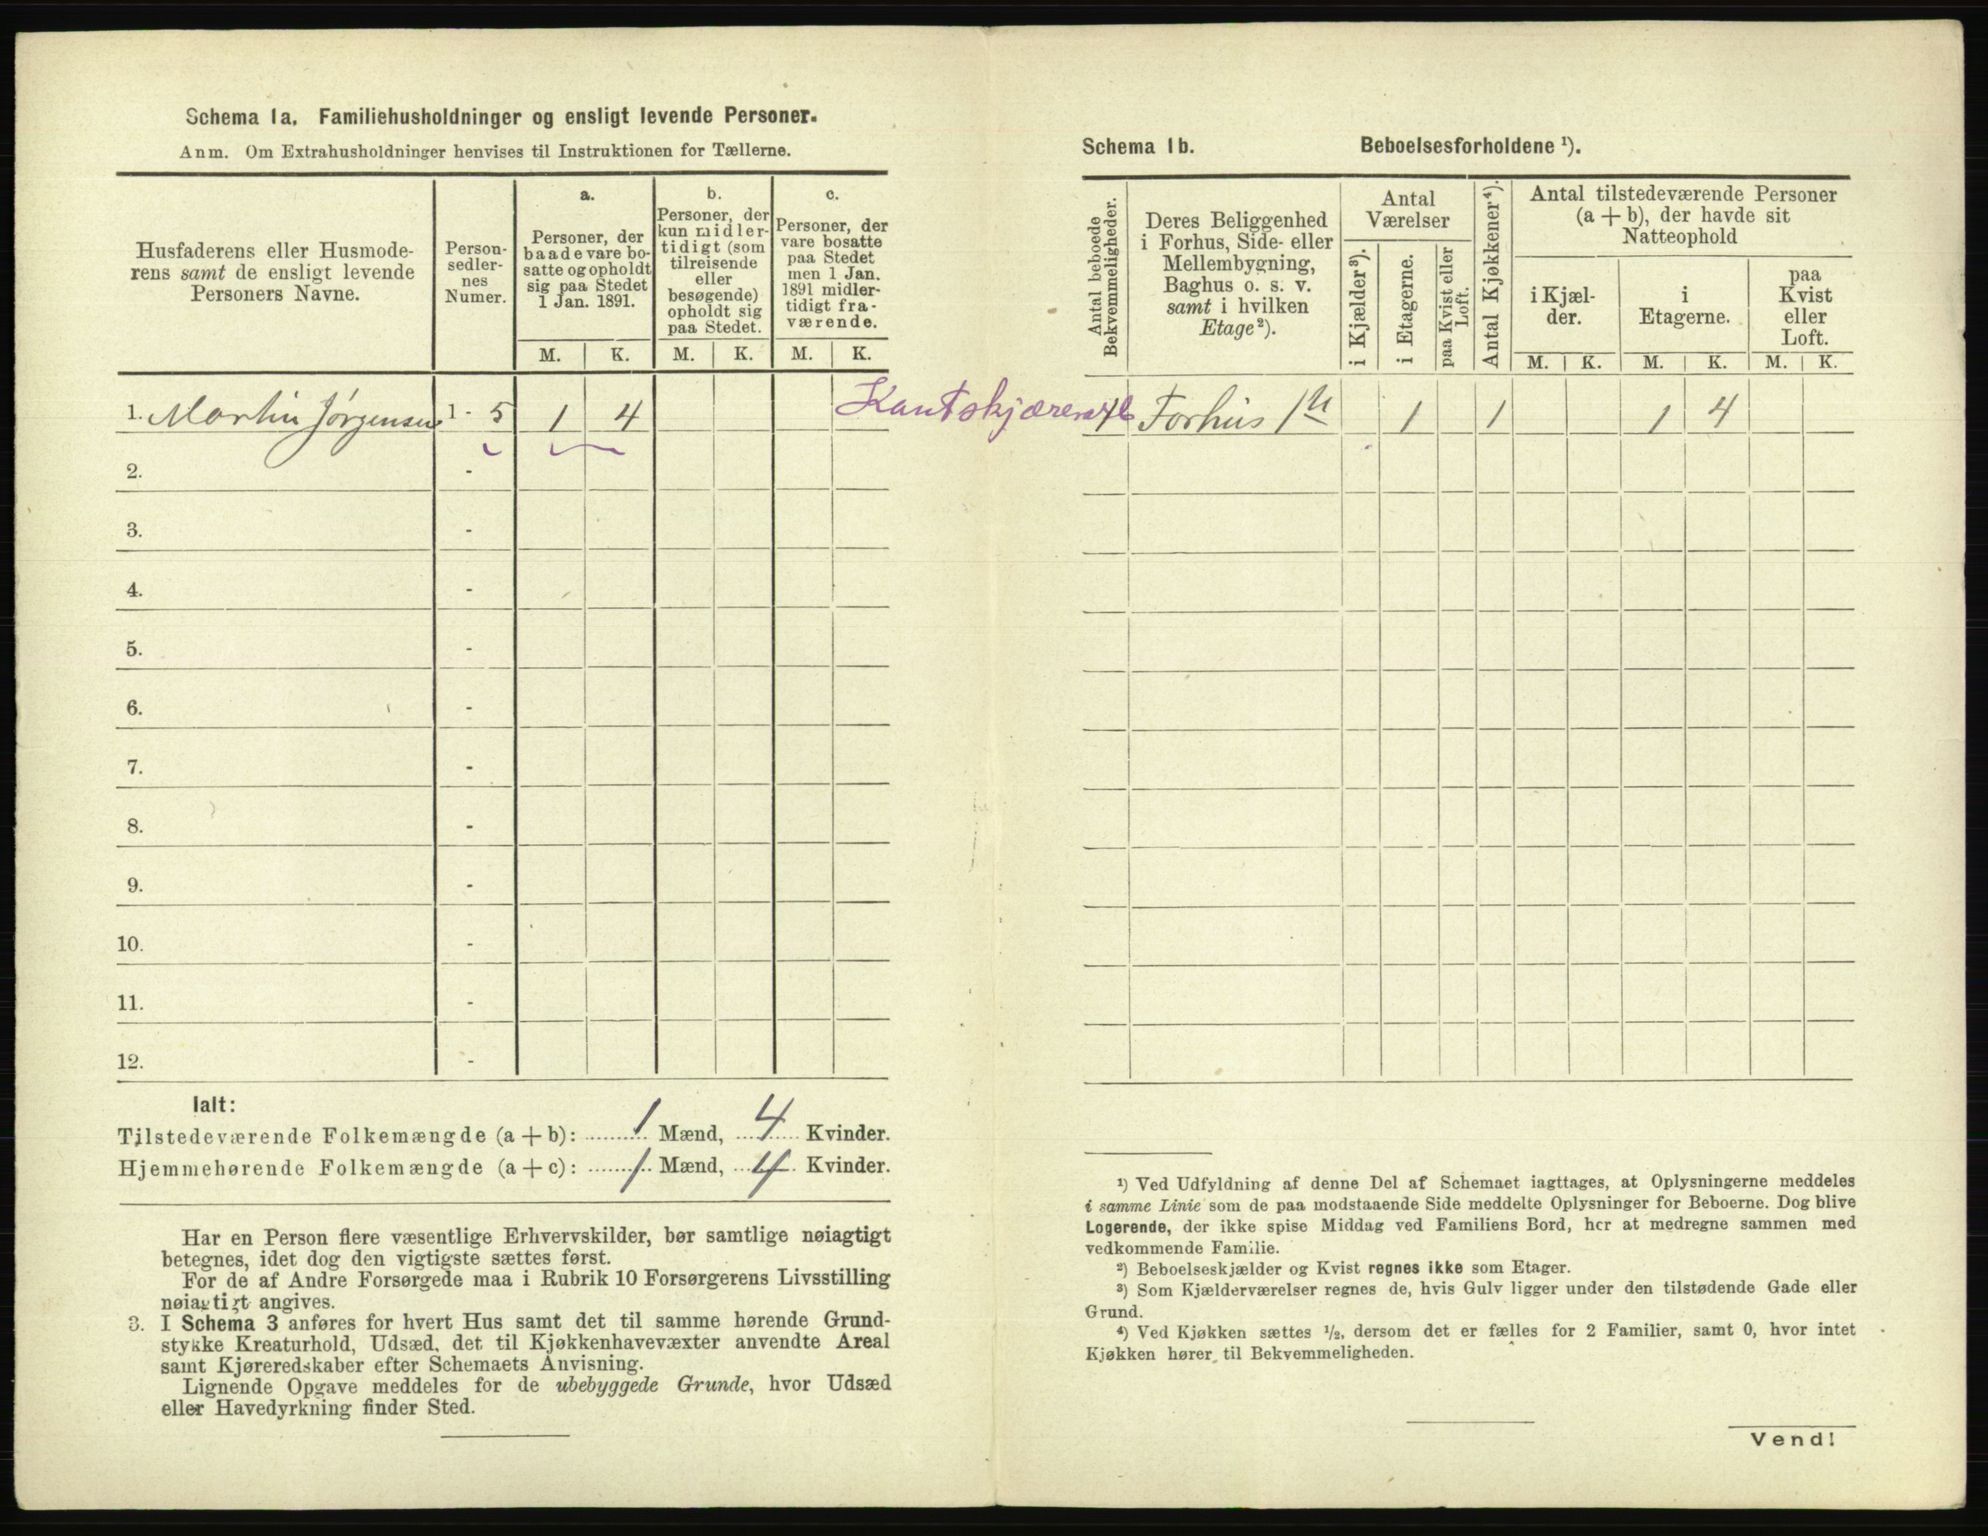 Schema 1a. Familiehusholdninger og ensligt levende Personer.
Anm. Om Extrahusholdninger henvises til Instruktionen for Tællerne.
Husfaderens eller Husmode-
rens samt de ensligt levende
Personers Navne.
Person-
sedler-
nes
Numer.
a.
Personer, der
baade vare bo-
satte og opholdt
sig paa Stedet
1 Jan. 1891.
b.
Personer, der
kun midler-
tidigt (som
tilreisende
eller
besøgende)
opholdt sig
paa Stedet.
c.
Personer, der
vare bosatte
paa Stedet
men 1 Jan.
1891 midler-
tidigt fra-
værende.
M. K. M. K. M. K.
1. Martin Jørgensen 1 - 5 1 4
2. -
3. -
4. -
5. -
6. -
7. -
8. -
9. -
10. -
11. -
12. -
Ialt:
Tilstedeværende Folkemængde (a + b): 1 Mænd, 4 Kvinder.
Hjemmehørende Folkemængde (a + c): 1 Mænd, 4 Kvinder.
Har en Person flere væsentlige Erhvervskilder, bør samtlige nøiagtigt
betegnes, idet dog den vigtigste sættes først.
For de af Andre Forsørgede maa i Rubrik 10 Forsørgerens Livsstilling
nøiagtigt angives.
3. I Schema 3 anføres for hvert Hus samt det til samme hørende Grund-
stykke Kreaturhold, Udsæd, det til Kjøkkenhavevæxter anvendte Areal
samt Kjøreredskaber efter Schemaets Anvisning.
Lignende Opgave meddeles for de ubebyggede Grunde, hvor Udsæd
eller Havedyrkning finder Sted.
Schema 1b. Beboelsesforholdene ¹).
Antal beboede
Bekvemmeligheder.
Deres Beliggenhed
i Forhus, Side- eller
Mellembygning,
Baghus o. s. v.
samt i hvilken
Etage²).
Antal
Værelser
i Kjælder³).
i Etagerne.
paa Kvist eller
Loft.
Antal Kjøkkener⁴).
Antal tilstedeværende Personer
(a + b), der havde sit
Natteophold
i Kjæl-
der.
i
Etagerne.
paa
Kvist
eller
Loft.
M. K. M. K. M. K.
Forhus 1 1 1 1 4
¹) Ved Udfyldning af denne Del af Schemaet iagttages, at Oplysningerne meddeles
i samme Linie som de paa modstaaende Side meddelte Oplysninger for Beboerne. Dog blive
Logerende, der ikke spise Middag ved Familiens Bord, her at medregne sammen med
vedkommende Familie.
²) Beboelseskjælder og Kvist regnes ikke som Etager.
³) Som Kjælderværelser regnes de, hvis Gulv ligger under den tilstødende Gade eller
Grund.
⁴) Ved Kjøkken sættes ½, dersom det er fælles for 2 Familier, samt 0, hvor intet
Kjøkken hører til Bekvemmeligheden.
Vend!